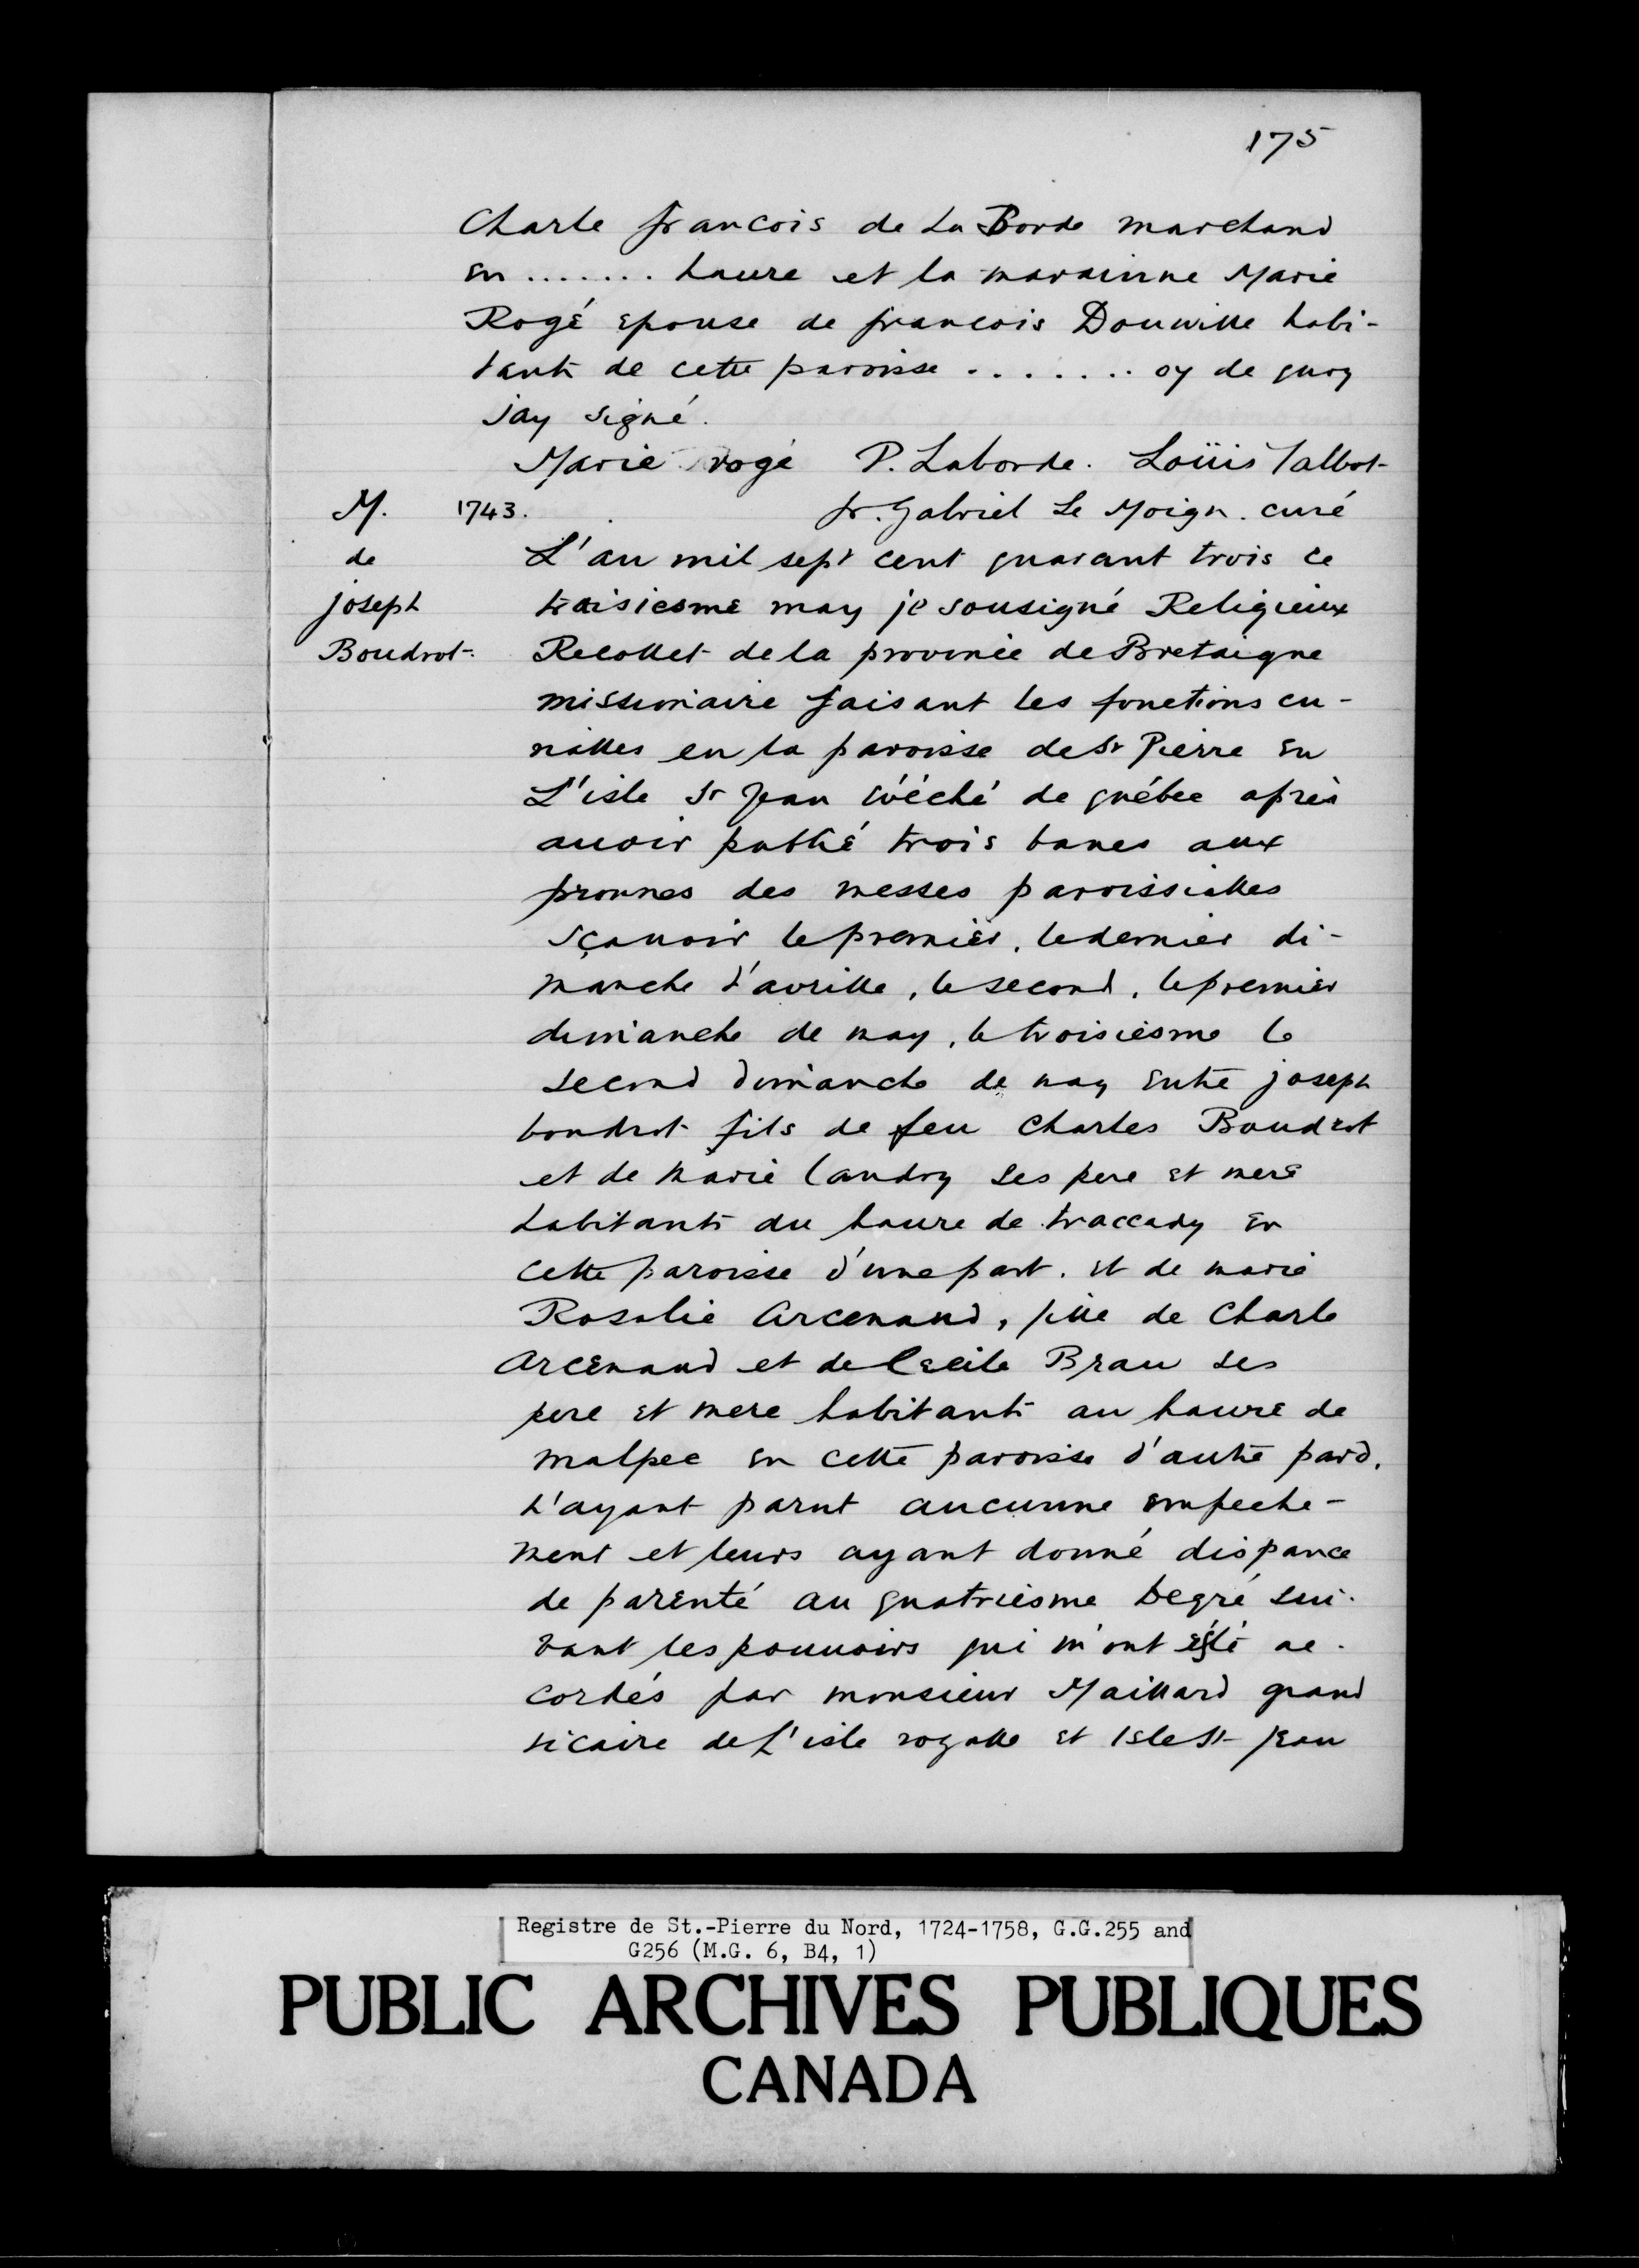 175
Charle francois de La Borde marchand
en ....... haure et la marainne Marie
Rogé epouse de francois Douville habi-
tants de cette paroisse ....... oy de quoy
jay signé.
Marie rogé P. Laborde. Loüis Talbot
M. 1743. fr. Gabriel Le Moign. curé
de L'an mil sept cent quarant trois ce
joseph troisiesme may je sousigné Religieux
Boudrot. Recollet de la province de Bretaigne
missionaire faisant les fonctions cu-
rialles en la paroisse de St Pierre en
L'isle St Jean évéché de québec après
auoir publié trois bancs aux
pronnes des messes paroissialles
sçauoir le premier, le dernier di-
manche d'avrille, le second, le premier
dimanche de may, le troisiesme le
second dimanche de may entre joseph
boudrot fils de feu Charles Boudrot
et de Marie Landry ses pere et mere
habitants du haure de traccady en
cette paroisse d'une part. et de marie
Rosalie Arcenaud, fille de Charle
Arcenaud et de Cecile Brau ses
pere et mere habitants au haure de
malpec en cette paroisse d'autre pard.
n'ayant parut aucunne empeche-
ment et leurs ayant donné dispance
de parenté au quatriesme degré sui-
vant les pouuoirs qui m'ont esté ac-
cordés par monsieur Maillard grand
vicaire de L'isle royalle et Isle St Jean
Registre de St.-Pierre du Nord, 1724-1758, G.G.255 and
G256 (M.G. 6, B4, 1)
PUBLIC ARCHIVES PUBLIQUES
CANADA